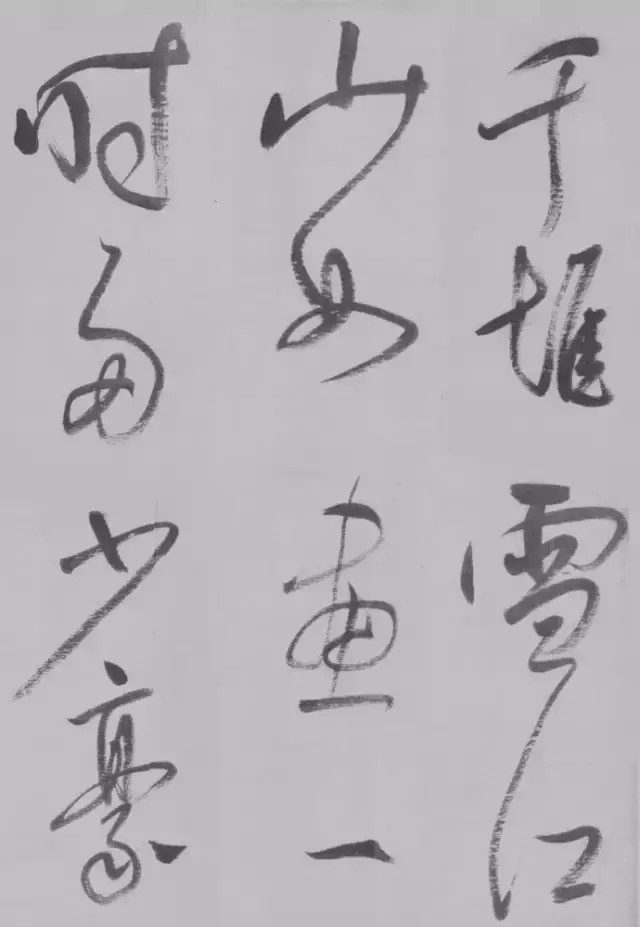 千堆雪江
山如畫一
时多少豪